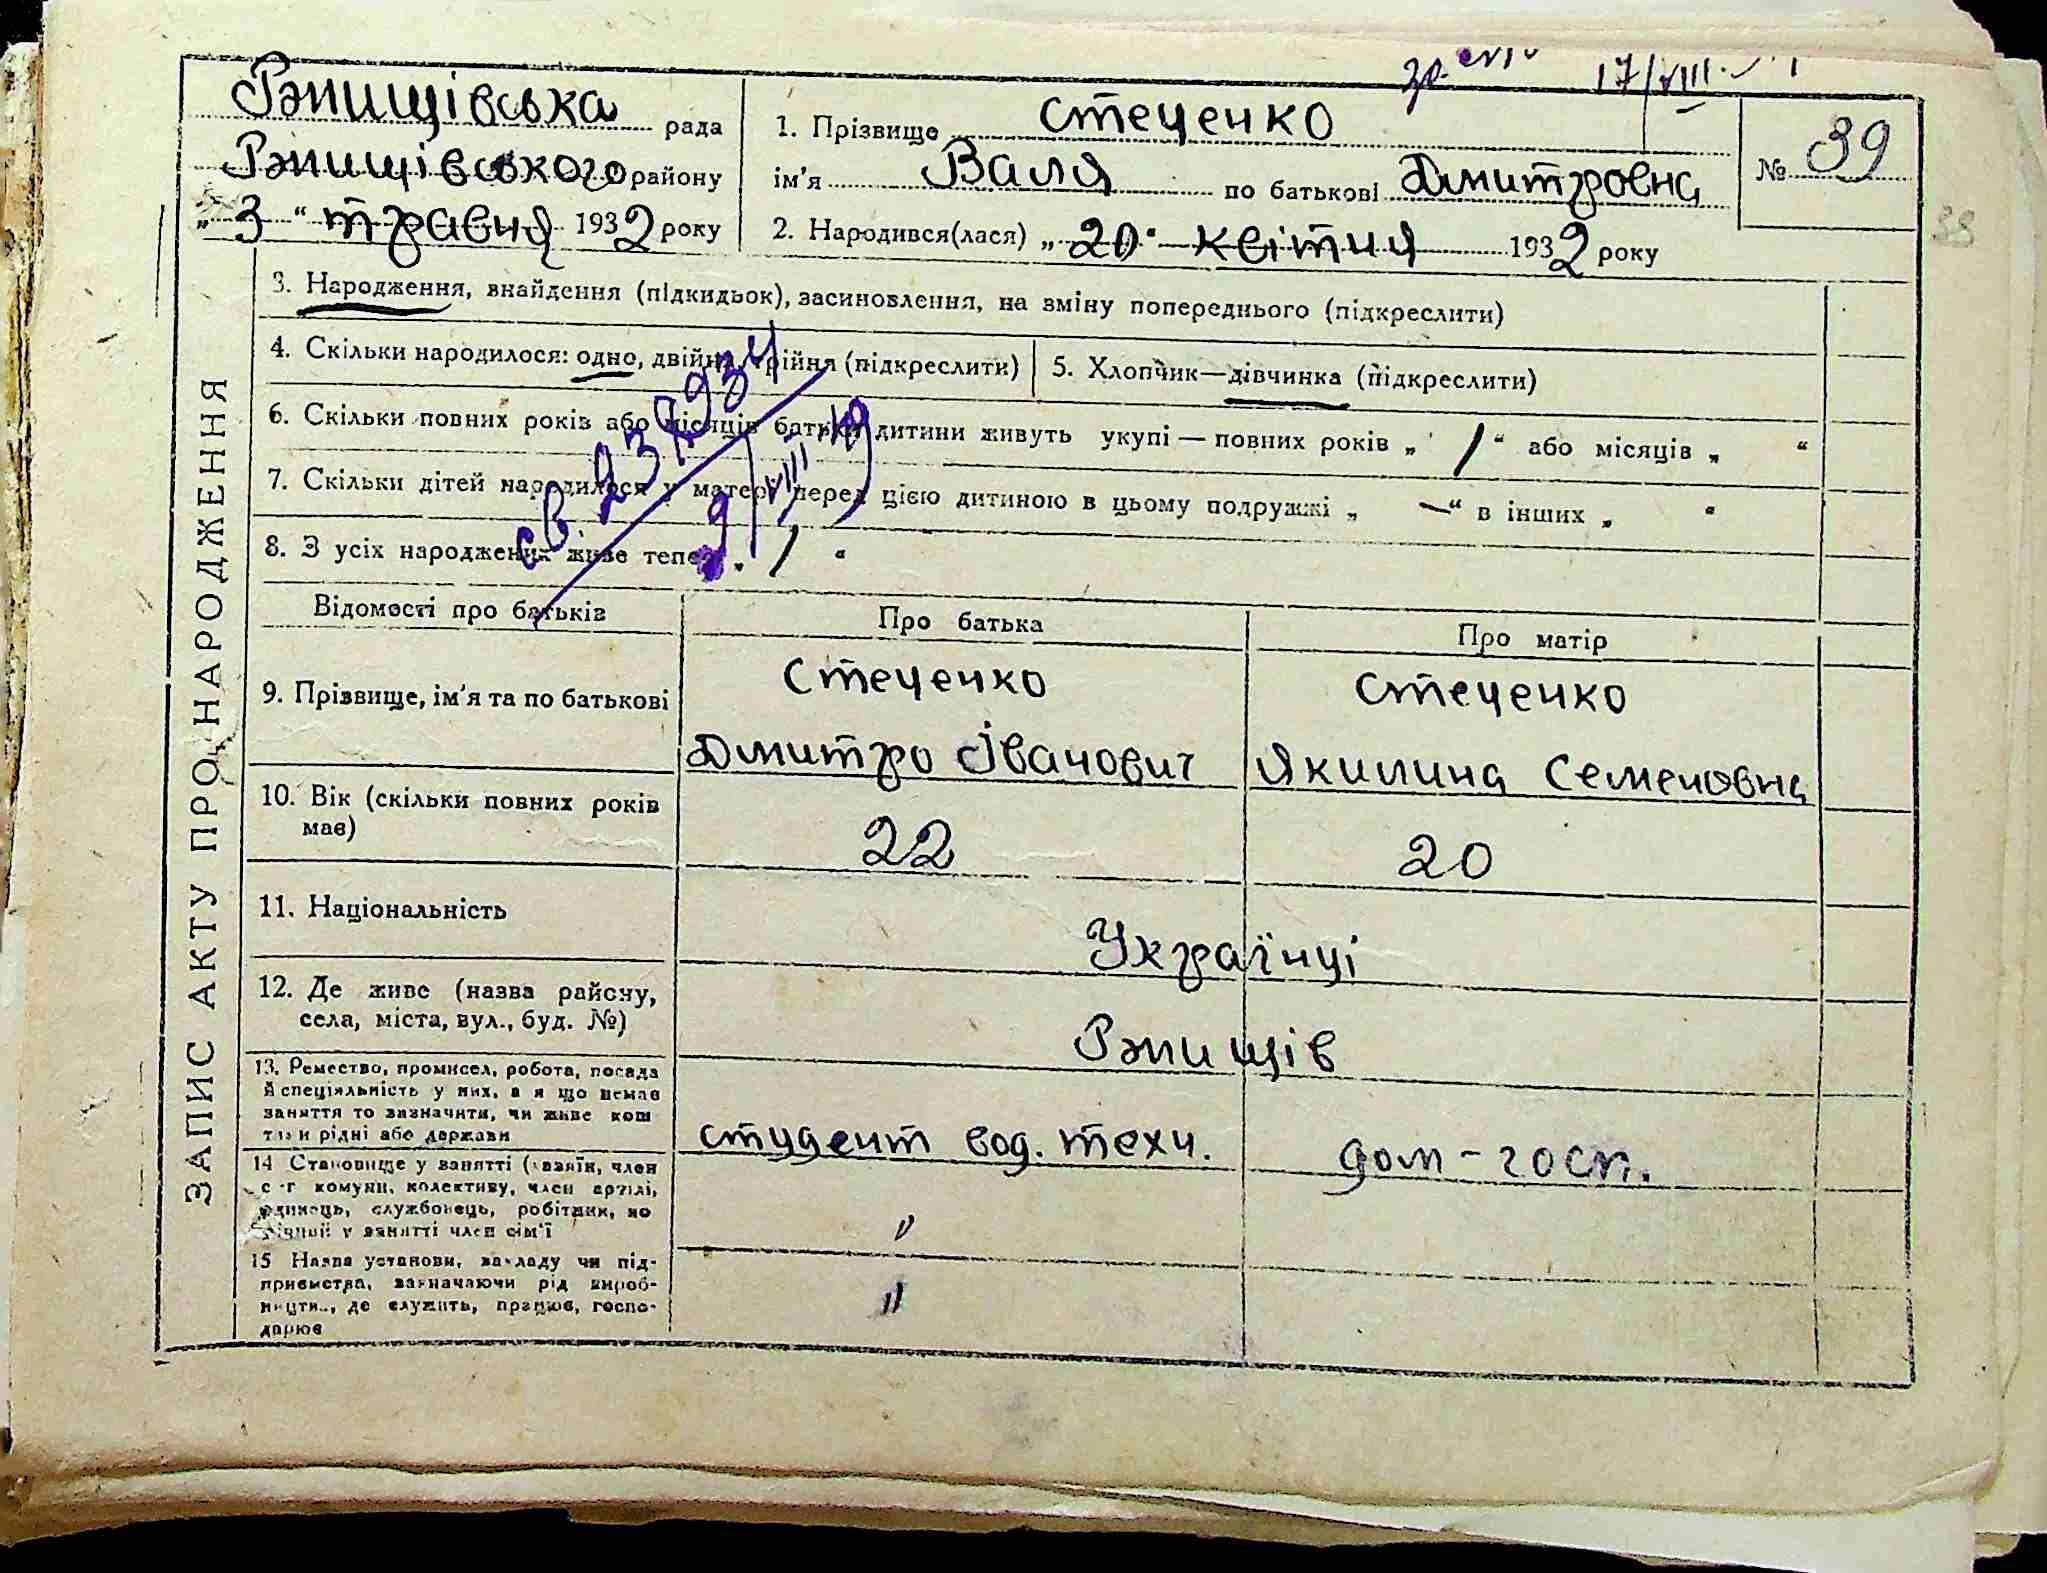 Ржищівська рада
Ржищівського району
„ 3 “ травня 1932 року
17/VIII
1. Прізвище Стеценко
ім'я Валя по батькові Дмитровна
№ 39
2. Народився(лася) „ 20 “ квітня 1932 року
38
ЗАПИС АКТУ ПРО НАРОДЖЕННЯ
3. Народження, знайдення (підкидьок), засиновлення, на зміну попереднього (підкреслити)
4. Скільки народилося: одно, двійня, трійня (підкреслити)
5. Хлопчик—дівчинка (підкреслити)
6. Скільки повних років або місяців батьки дитини живуть укупі — повних років „ 1 “ або місяців „ “
7. Скільки дітей народилося у матері перед цією дитиною в цьому подружжі „ — “ в інших „ “
8. З усіх народжених живе тепер „ 1 “
Відомості про батьків
Про батька
Про матір
9. Прізвище, ім'я та по батькові
Стеценко
Дмитро Іванович
Стеценко
Якилина Семеновна
10. Вік (скільки повних років
має)
22
20
11. Національність
Українці
12. Де живе (назва району,
села, міста, вул., буд. №)
Ржищів
13. Ремество, промисел, робота, посада
й спеціяльність у них, а я що немає
заняття то зазначити, чи живе кош
тами рідні або держави
студент вод. техн.
дом-госп.
14 Становище у занятті (хазяїн, член
с-г комуни, колективу, член артілі,
одинець, службовець, робітник, по
у занятті член сім'ї
"
15 Назва установи, закладу чи під-
приємства, зазначаючи рід вироб-
ництв., де служить, працює, госпо-
дарює
"